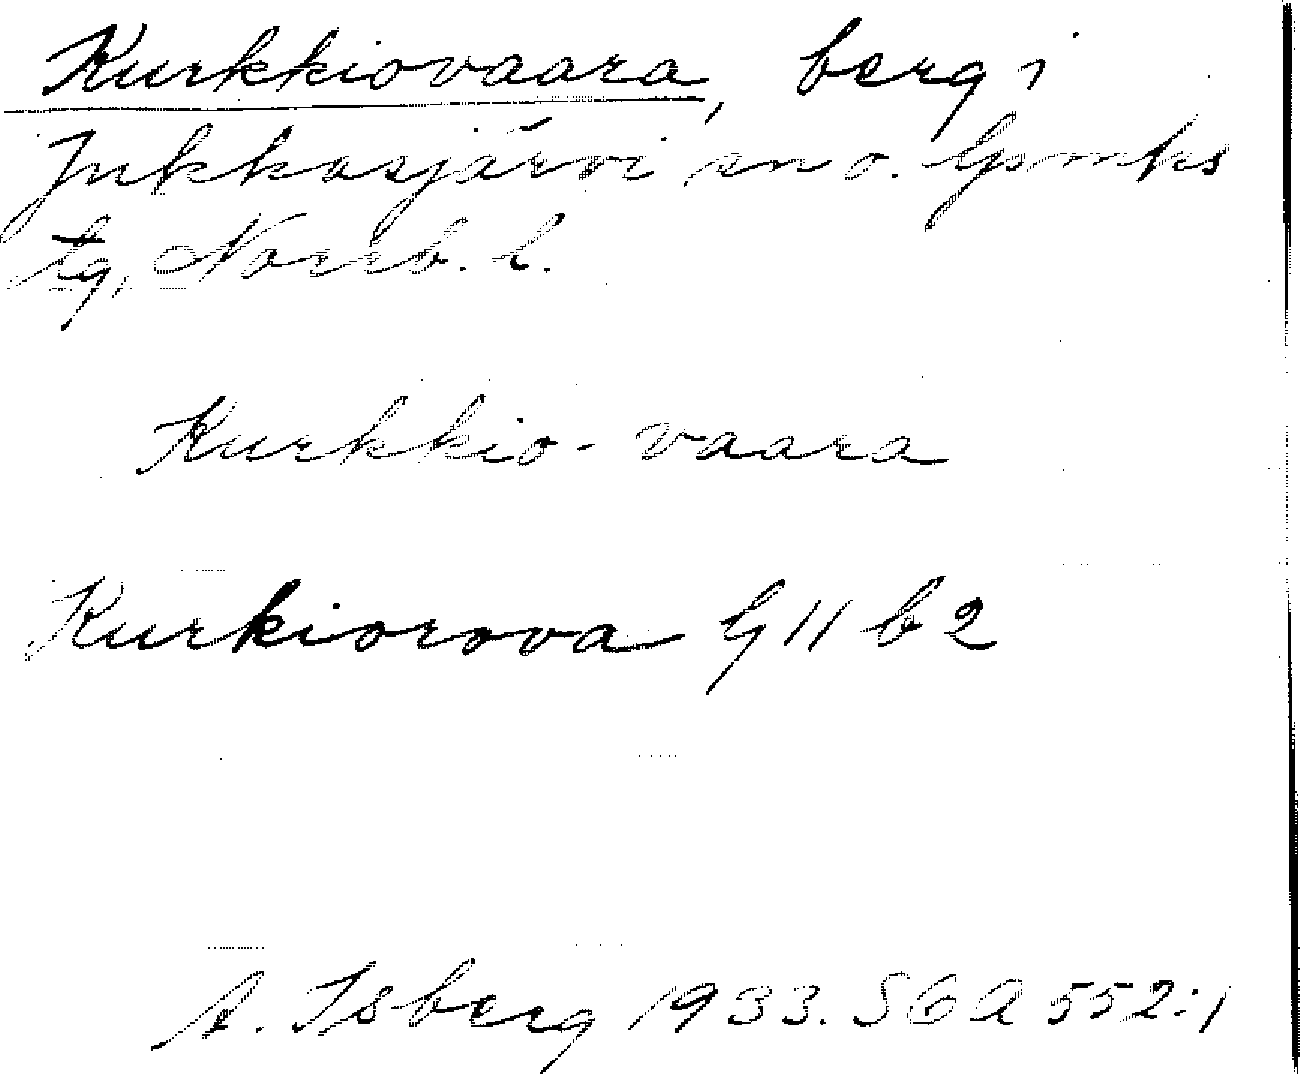 Kurkkiovaara, berg i
Jukkasjärvi sn o. lpmks
tg, Norrb. l.
Kurkkio-vaara
Kurkiorova G 11 b 2
A. Isberg 1933. SOA 552:1